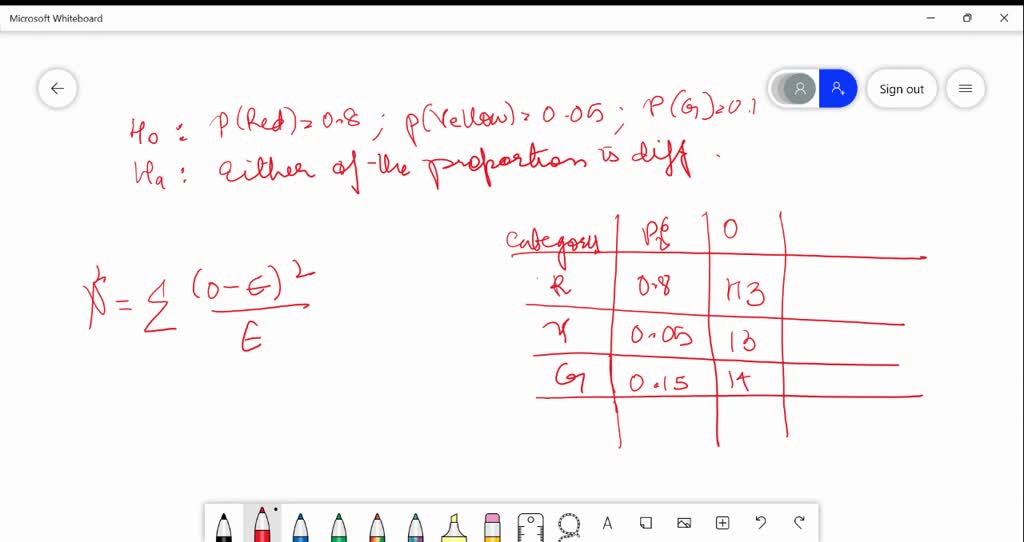 Microsoft Whiteboard
Sign out
H0 : P(Red)=0.8 ; P(Yellow)=0.05 ; P(G)=0.1
Ha : Either of the proportion is diff .
χ² = Σ (O-E)² / E
Category O
R 0.8 113
Y 0.05 13
G 0.15 14
A